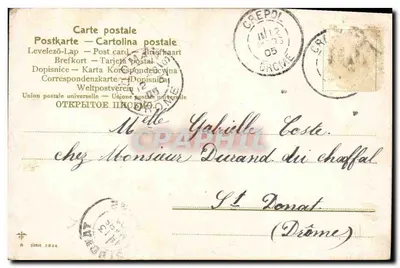 Carte postale
Postkarte – Cartolina postale
Levelező-Lap – Post card –
Brefkort – Tarjeta postal
Dopisnice – Karta Korespondencyjna
Correspondenzkarte – Dopisnica
Weltpostverein
Union postale universelle –
ОТКРЫТОЕ ПИСЬМО.
CREPOL
05
DROME
Melle Gabrielle Coste
chez Monsieur Durand du chaffal
St Donat
(Drôme)